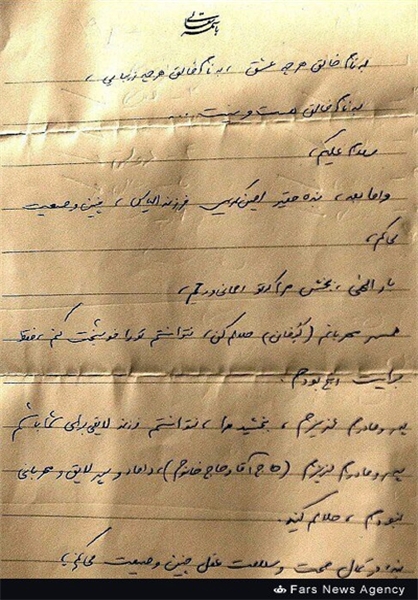 باسمه تعالی
به نام خالق هرچه عشق ، به نام خالق هرچه زیبایی ،
به نام خالق هست و نیست ...
سلام علیکم ،
و اما بعد ، بنده حقیر امین کریمی فرزند الیاس ، چنین وصیت
میکنم ،
بار الهی ، ببخش مرا که
همسر مهربانم ( ) حلالم کن ، نتوانستم تو را خوشبخت کنم ، فقط
برایت رنج بودم .
پدر و مادرم عزیزم ، ببخشید مرا ، نتوانستم فرزند لایقی برای شما باشم
پدر و مادرم عزیزم ( حاج آقا و حاج خانوم ) ، داماد و پسر لایق و مهربانی
نبودم ، حلالم کنید .
بنده در کمال صحت و سلامت عقل چنین وصیت میکنم
Fars News Agency